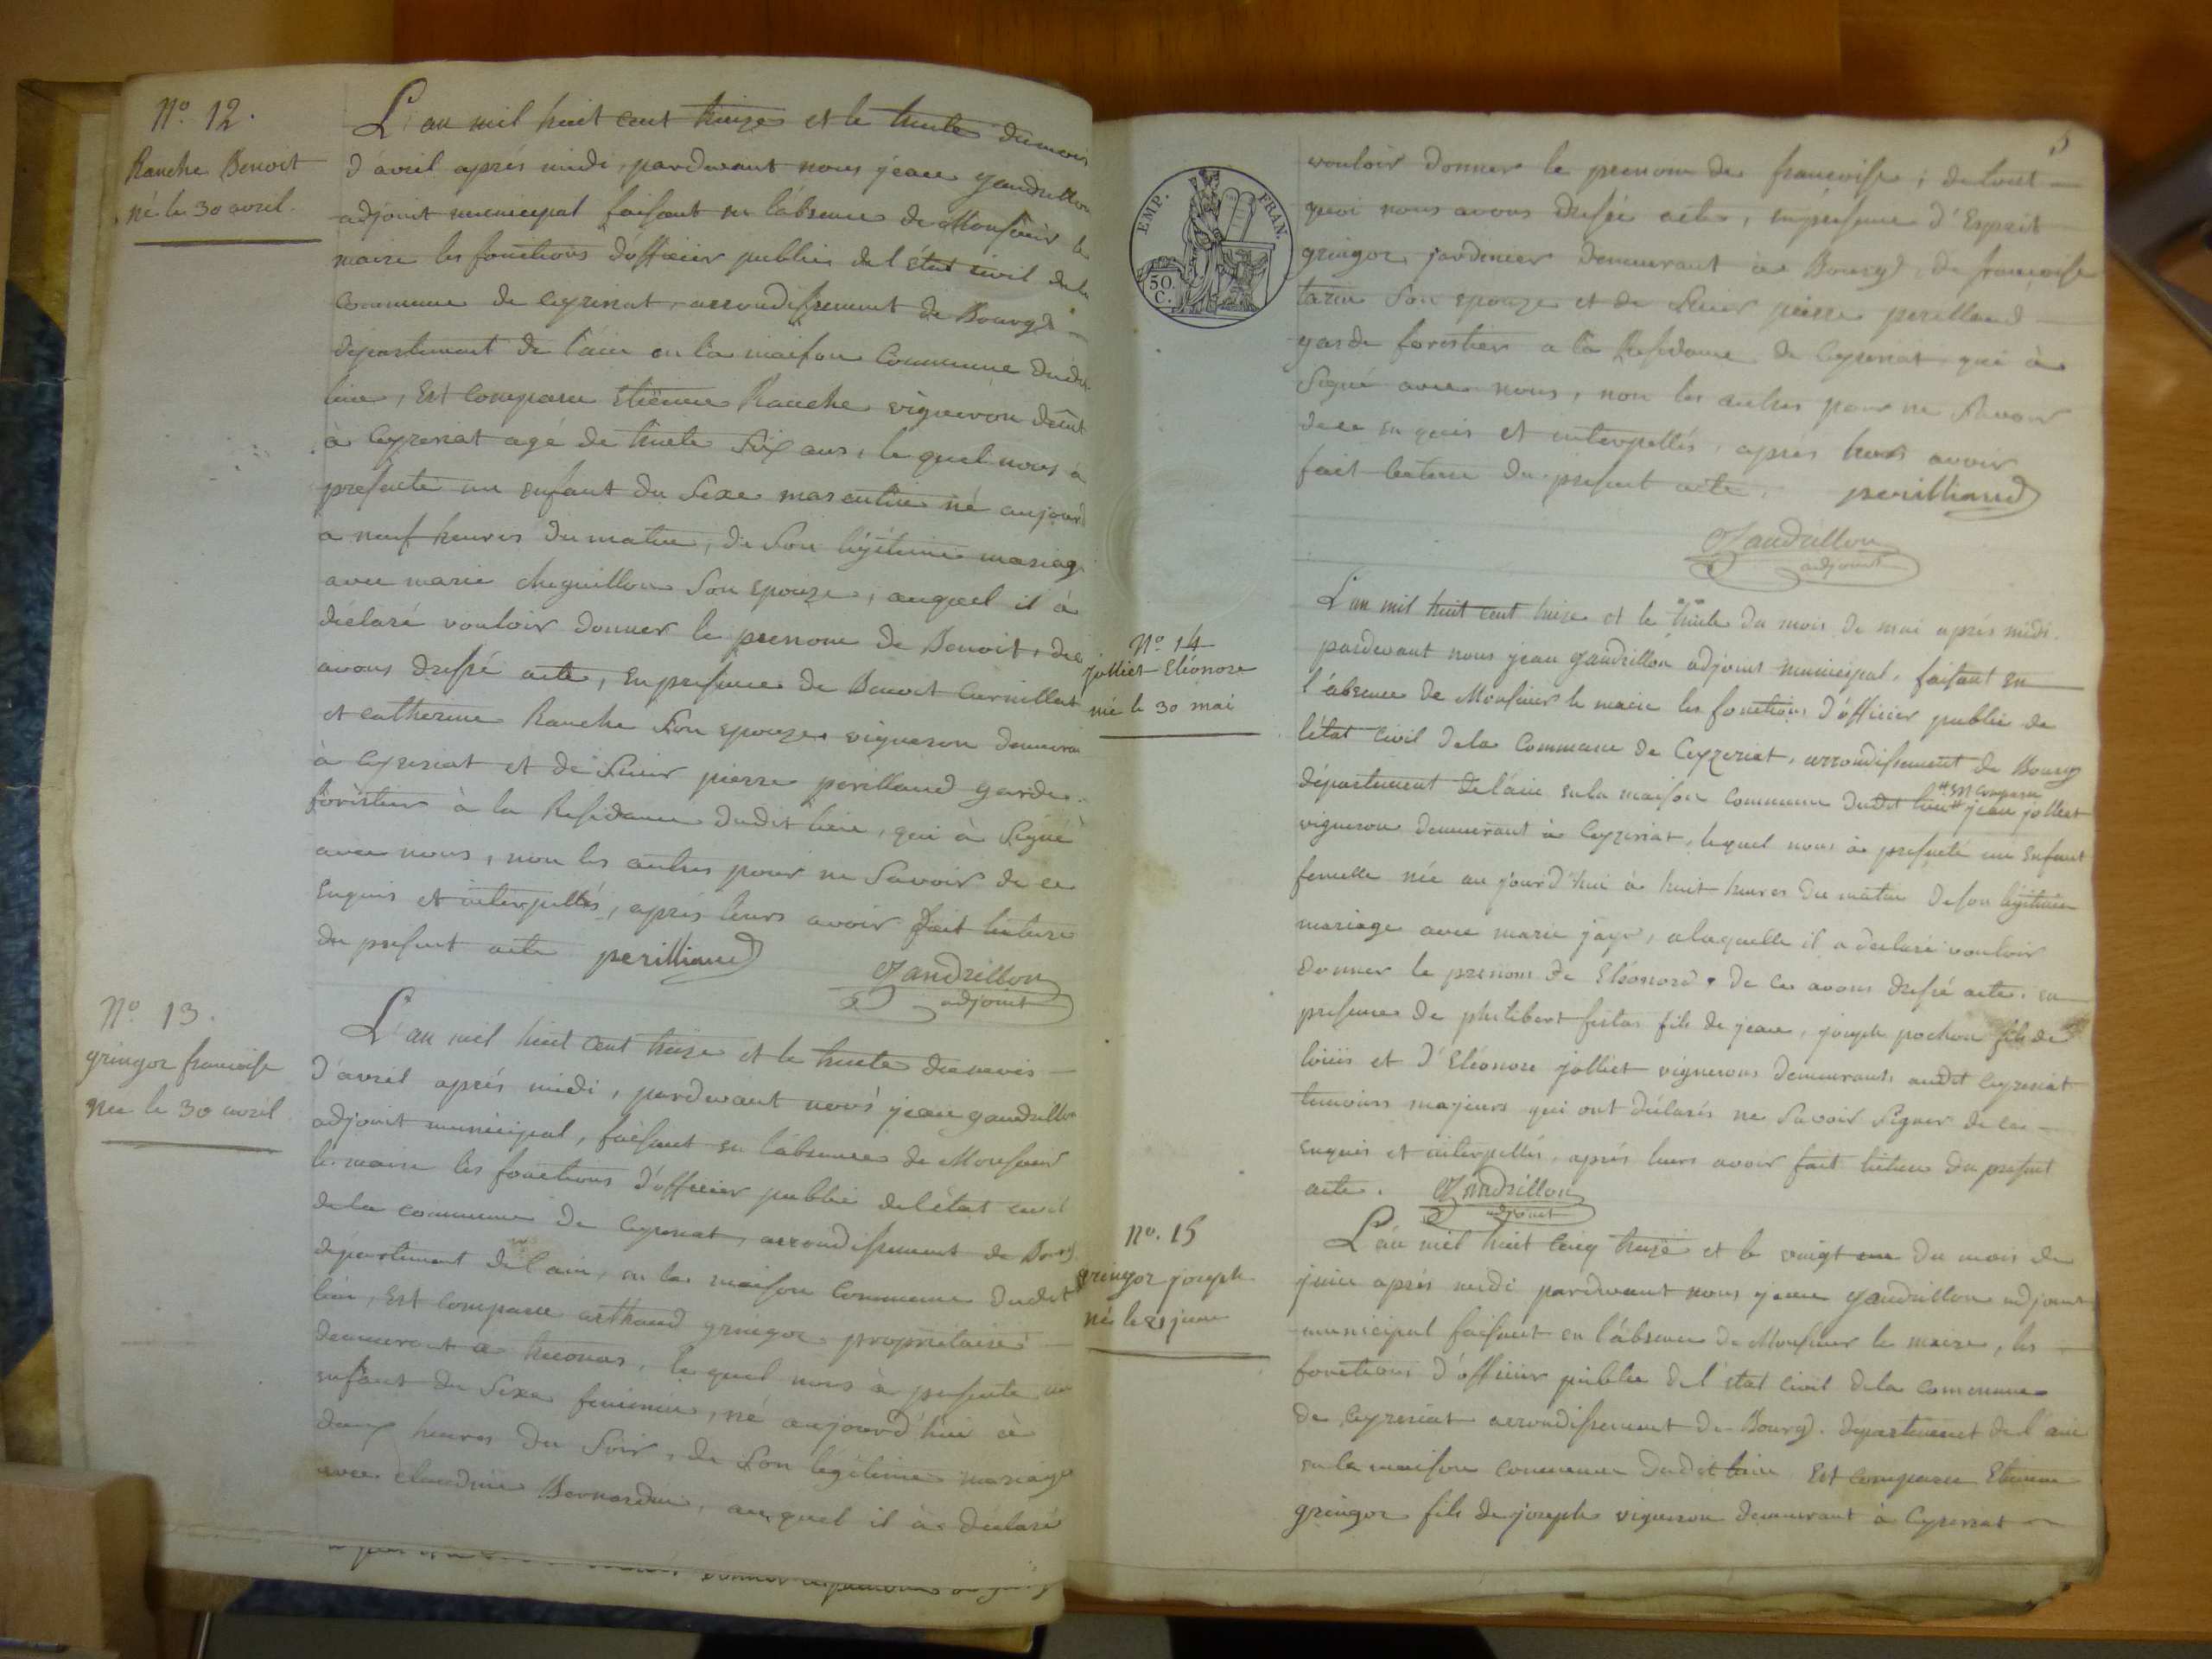 N.° 12.
Ranche Benoit
né le 30 avril.
L'an mil huit cent treize et le trente du mois
d'avril après midi, pardevant nous jean gandrillon
adjoint municipal faisant en l'absence de Monsieur le
maire les fonctions d'officier public de l'état civil de la
Commune de Ceyzeriat, arrondissement de Bourg
département de l'ain en la maison Commune dudit
lieu, Est comparu Etienne Ranche vigneron deint
à Ceyzeriat agé de trente Six ans, le quel nous à
presenté un enfant du Sexe masculin né aujourd
a neuf heures du matin, de Son légitime mariage
avec marie cheguillon Son epouze, auquel il à
déclaré vouloir donner le prenom de Benoit, de
avons dressé acte, En presence de Benoit Curvillat
et catherine Ranche Son epouze vigneron demeurant
à Ceyzeriat et de Sieur pierre perilliand garde
forestier à la Residance dudit lieu, qui à Signé
avec nous, non les autres pour ne Savoir de ce
Enquis et interpellés, après leurs avoir fait lecture
du present acte perilliand
Gandrillon
adjoint
N.° 13.
gringoz francoise
née le 30 avril
L'an mil huit cent treize et le trente du mois
d'avril après midi, pardevant nous jean gandrillon
adjoint municipal, faisant en l'absence de Monsieur
le maire les fonctions d'officier public de l'état civil
de la commune de Ceyzeriat, arrondissement de Bourg
département de l'ain, en la maison Commune dudit
lieu, Est comparu arthaud gringoz propriétaire
demeurant a, le quel nous à presenté un
enfant du Sexe feminin, né aujourd'hui à
deux heures du Soir, de Son légitime mariage
avec claudine Bernardin, au quel il à déclaré
5
EMP. FRAN.
50 C.
vouloir donner le prenom de francoise; de tout
quoi nous avons dressé acte, en presence d'Esprit
gringoz jardinier demeurant à Bourg, de francoise
tarin Son epouze et de Sieur pierre perilland
garde forestier a la Residance de Ceyzeriat qui à
Signé avec nous, non les autres pour ne Savoir
de ce en quis et interpellés, après leurs avoir
fait lecture du present acte. perilliand
Gandrillon
adjoint
N.° 14
Jolliet Eléonore
née le 30 mai
L'an mil huit cent treize et le trente du mois de mai après midi
pardevant nous jean gandrillon adjoint municipal, faisant en
l'absence de Monsieur le maire les fonctions d'officier public de
l'état civil de la Commune de Ceyzeriat, arrondissement de Bourg
département de l'ain en la maison commune dudit lieu # jean jolliet
# Est comparu
vigneron demeurant à Ceyzeriat, lequel nous à presenté un enfant
femelle née au jourd'hui à huit heures du matin de son légitime
mariage avec marie jayr, a laquelle il a declaré vouloir
donner le prenom de Eléonord. De ce avons dressé acte. en
presence de philibert festas fils de jean, joseph pochon fils de
loüis et d'Eléonore jolliet vignerons demeurants audit Ceyzeriat
temoins majeurs qui ont déclarés ne Savoir Signer de ce
enquis et interpellés, après leurs avoir fait lecture du present
acte. Gandrillon
adjoint
N.° 15
gringoz joseph
né le 21 juin
L'an mil huit cenq treize et le vingt un du mois de
juin après midi pardevant nous jean gandrillon adjoint
municipal faisant en l'absence de Monsieur le maire, les
fonctions d'officier public de l'état civil de la commune
de Ceyzeriat arrondissement de Bourg. departement de l'ain
en la maison commune dudit lieu Est comparu Etienne
gringoz fils de joseph vigneron demeurant à Ceyzeriat